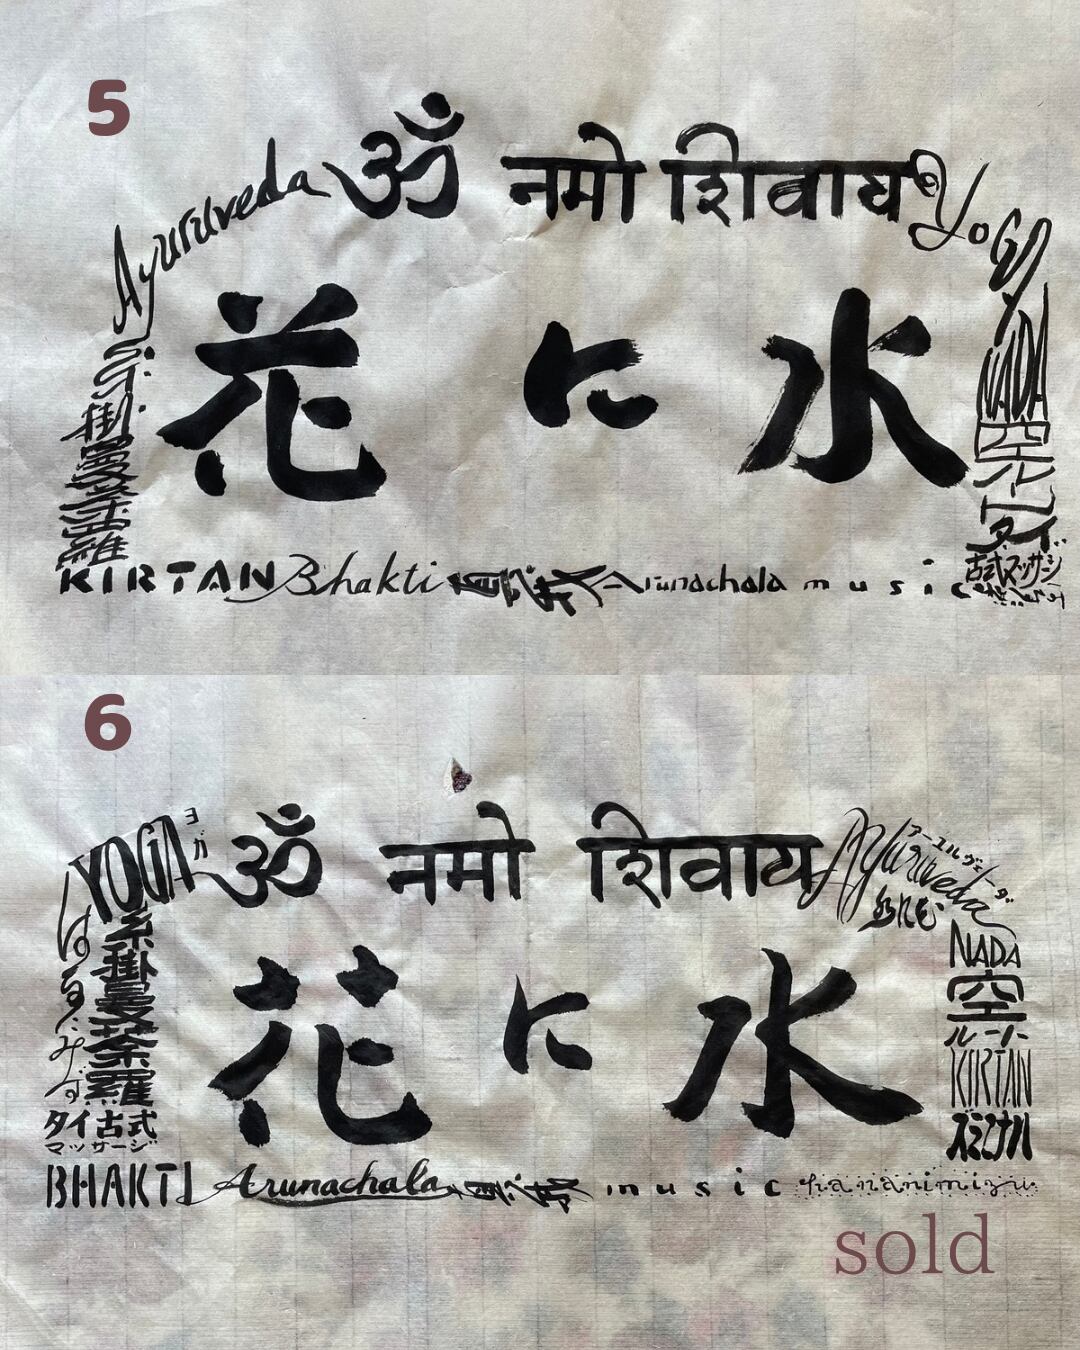 5
Ayuruveda
ॐ नमो शिवाय
Yoga
花に水
糸掛曼荼羅
NADA
空
タイ
古式マッサージ
KIRTAN Bhakti
Arunachala music
6
YOGA
ヨガ
ॐ नमो शिवाय
Ayuruveda
アーユルヴェーダ
花に水
はなにみず
糸掛曼荼羅
タイ古式
マッサージ
NADA
空
ルート
KIRTAN
BHAKTI Arunachala
music hananimizu
sold